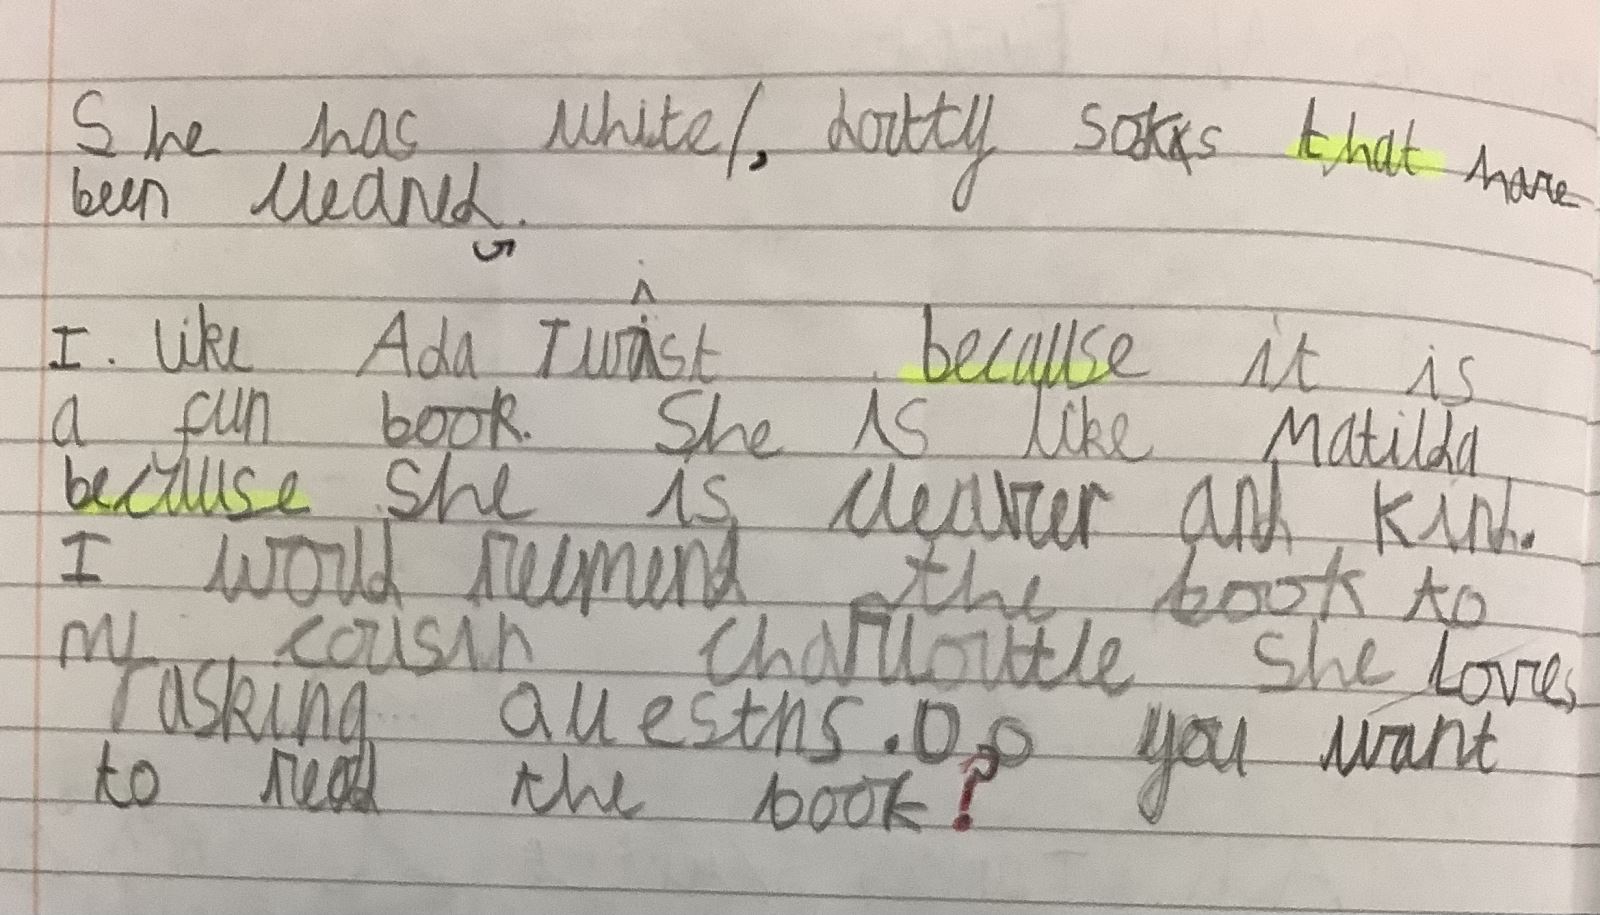 She has white/, dortty sokxs that have
been cleand.
I. like Ada Twist because it is
a fun book. She is like Matilda
because she is cleaver and kind.
I would recmend the book to
my cousin Charlouttle she loves
asking questhns. Do you want
to read the book?